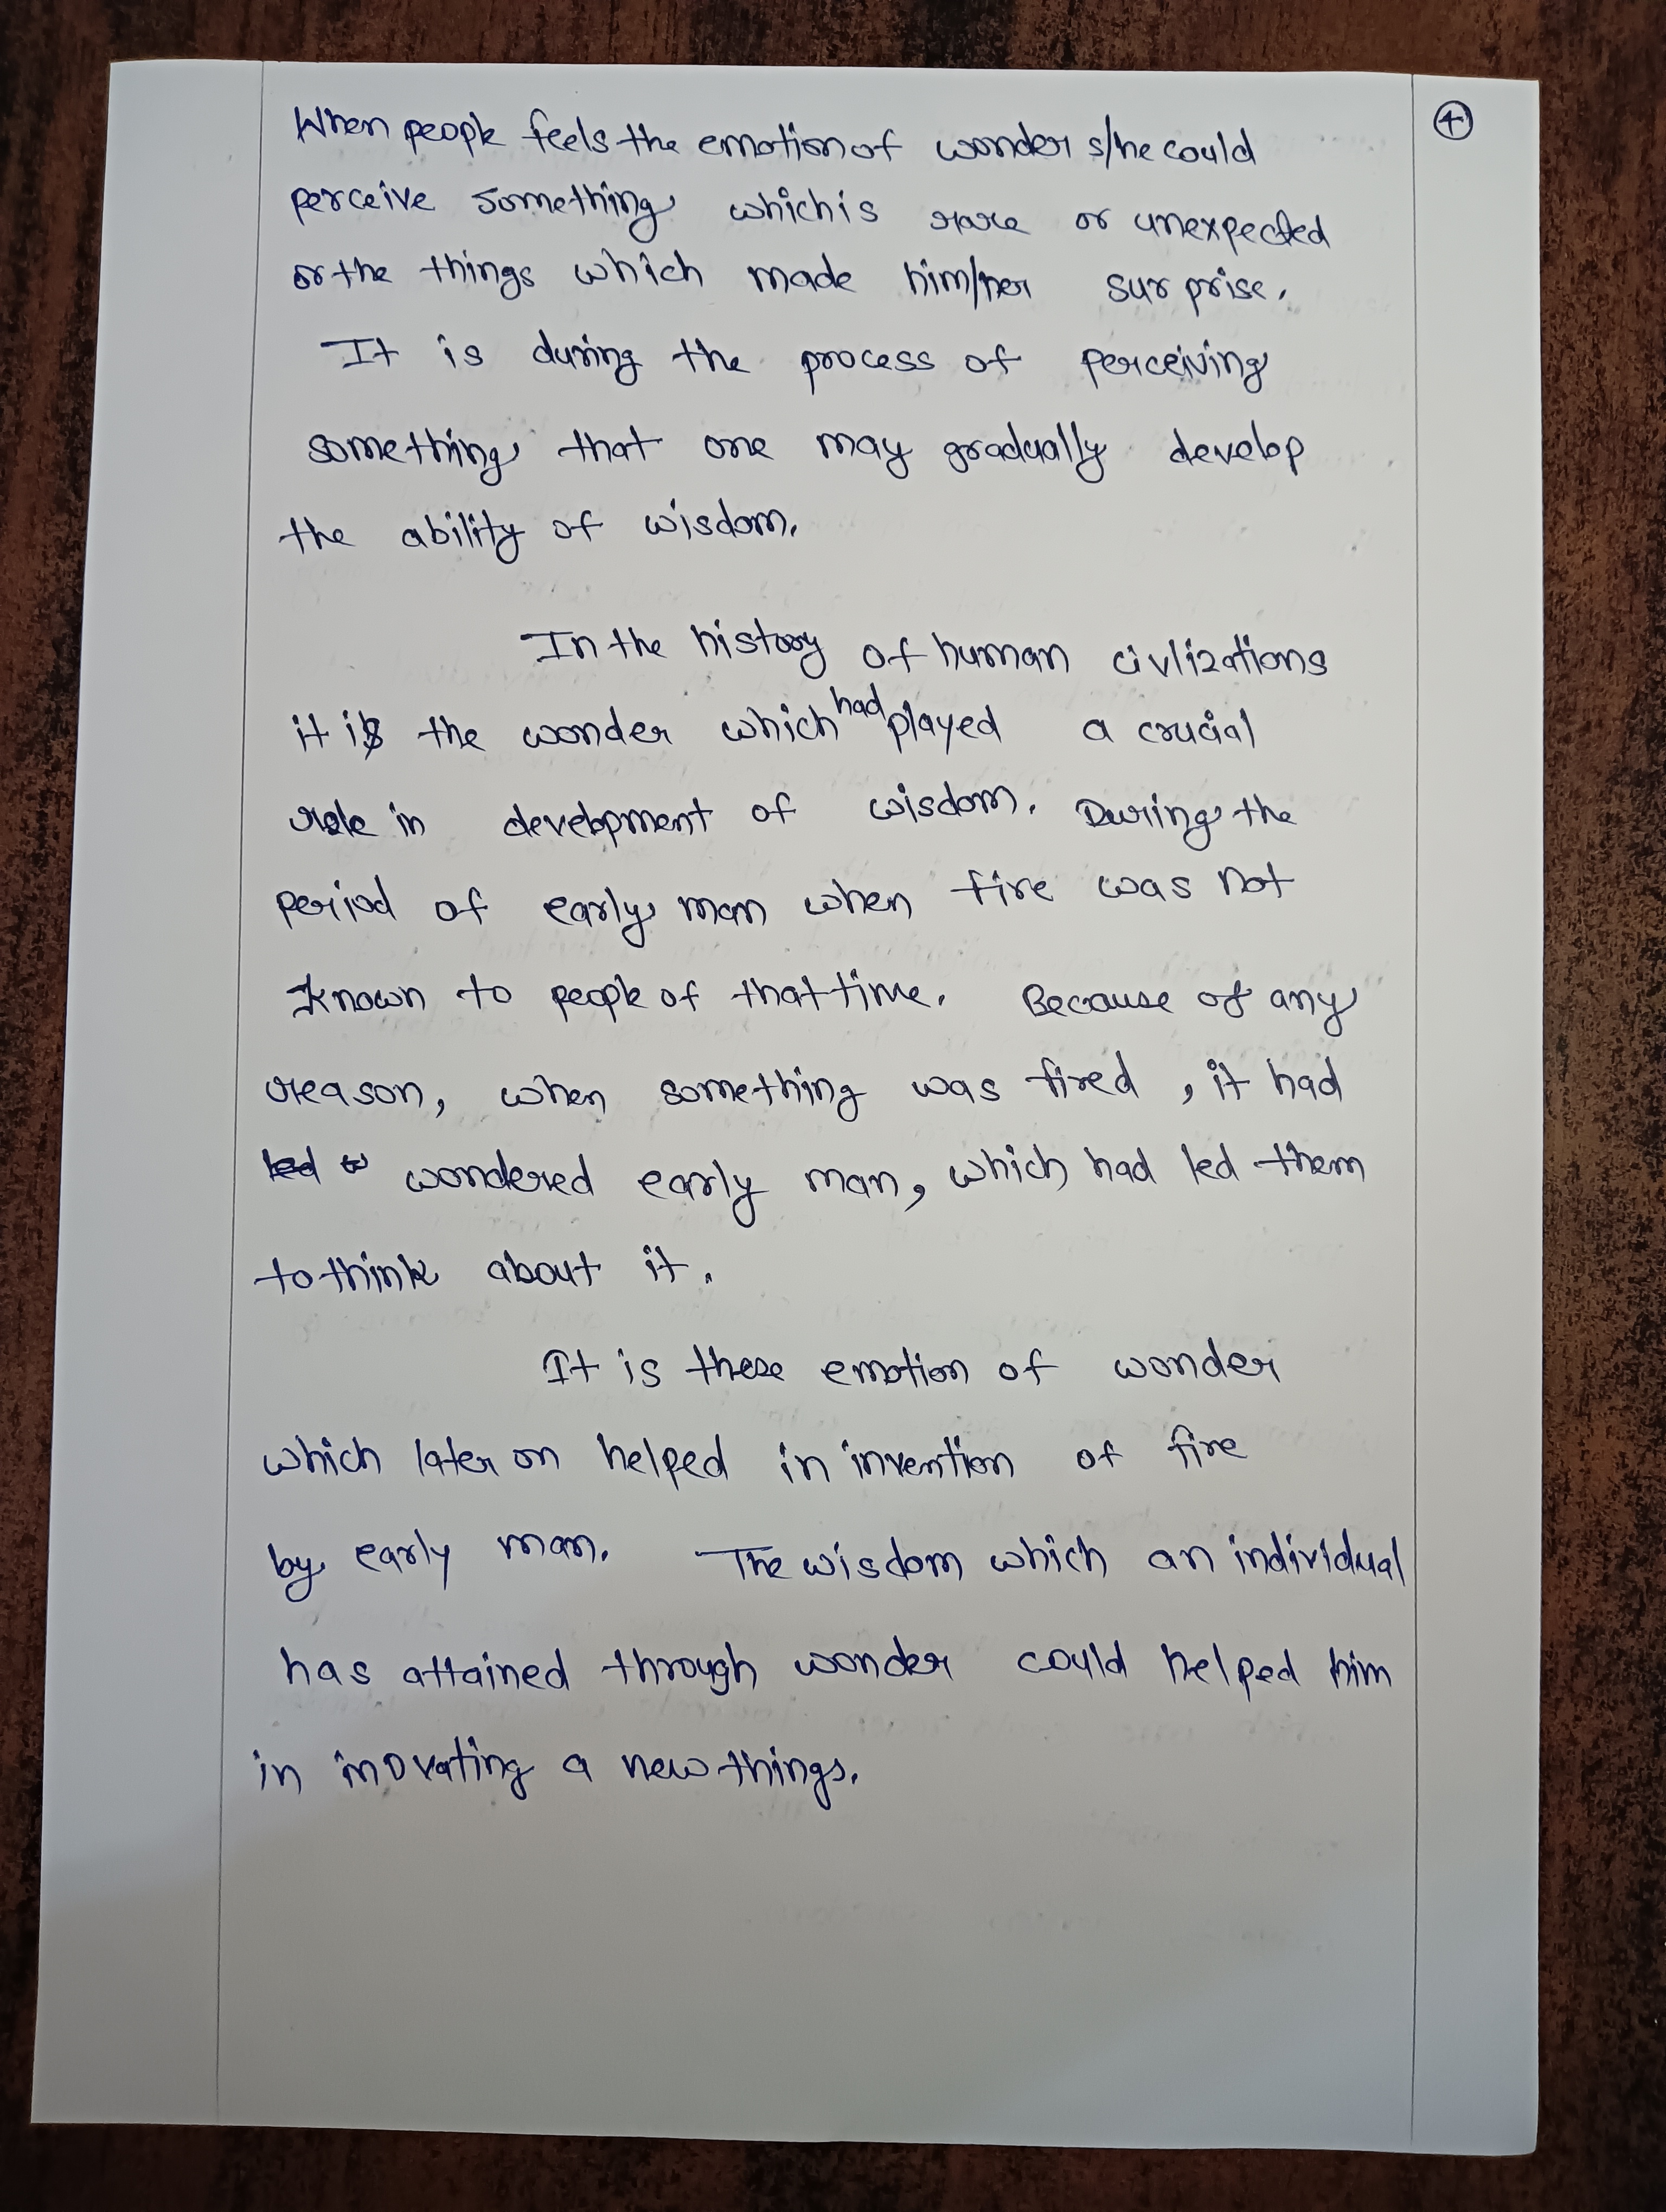 4
When people feels the emotion of wonder s/he could
perceive something which is rare or unexpected
or the things which made him/her surprise.
It is during the process of perceiving
something that one may gradually develop
the ability of wisdom.
In the history of human civlizations
it is the wonder which had played a crucial
role in development of wisdom. During the
period of early man when fire was not
known to people of that time. Because of any
reason, when something was fired, it had
wondered early man, which had led them
to think about it.
It is these emotion of wonder
which later on helped in invention of fire
by early man. The wisdom which an individual
has attained through wonder could helped him
in inovating a new things.